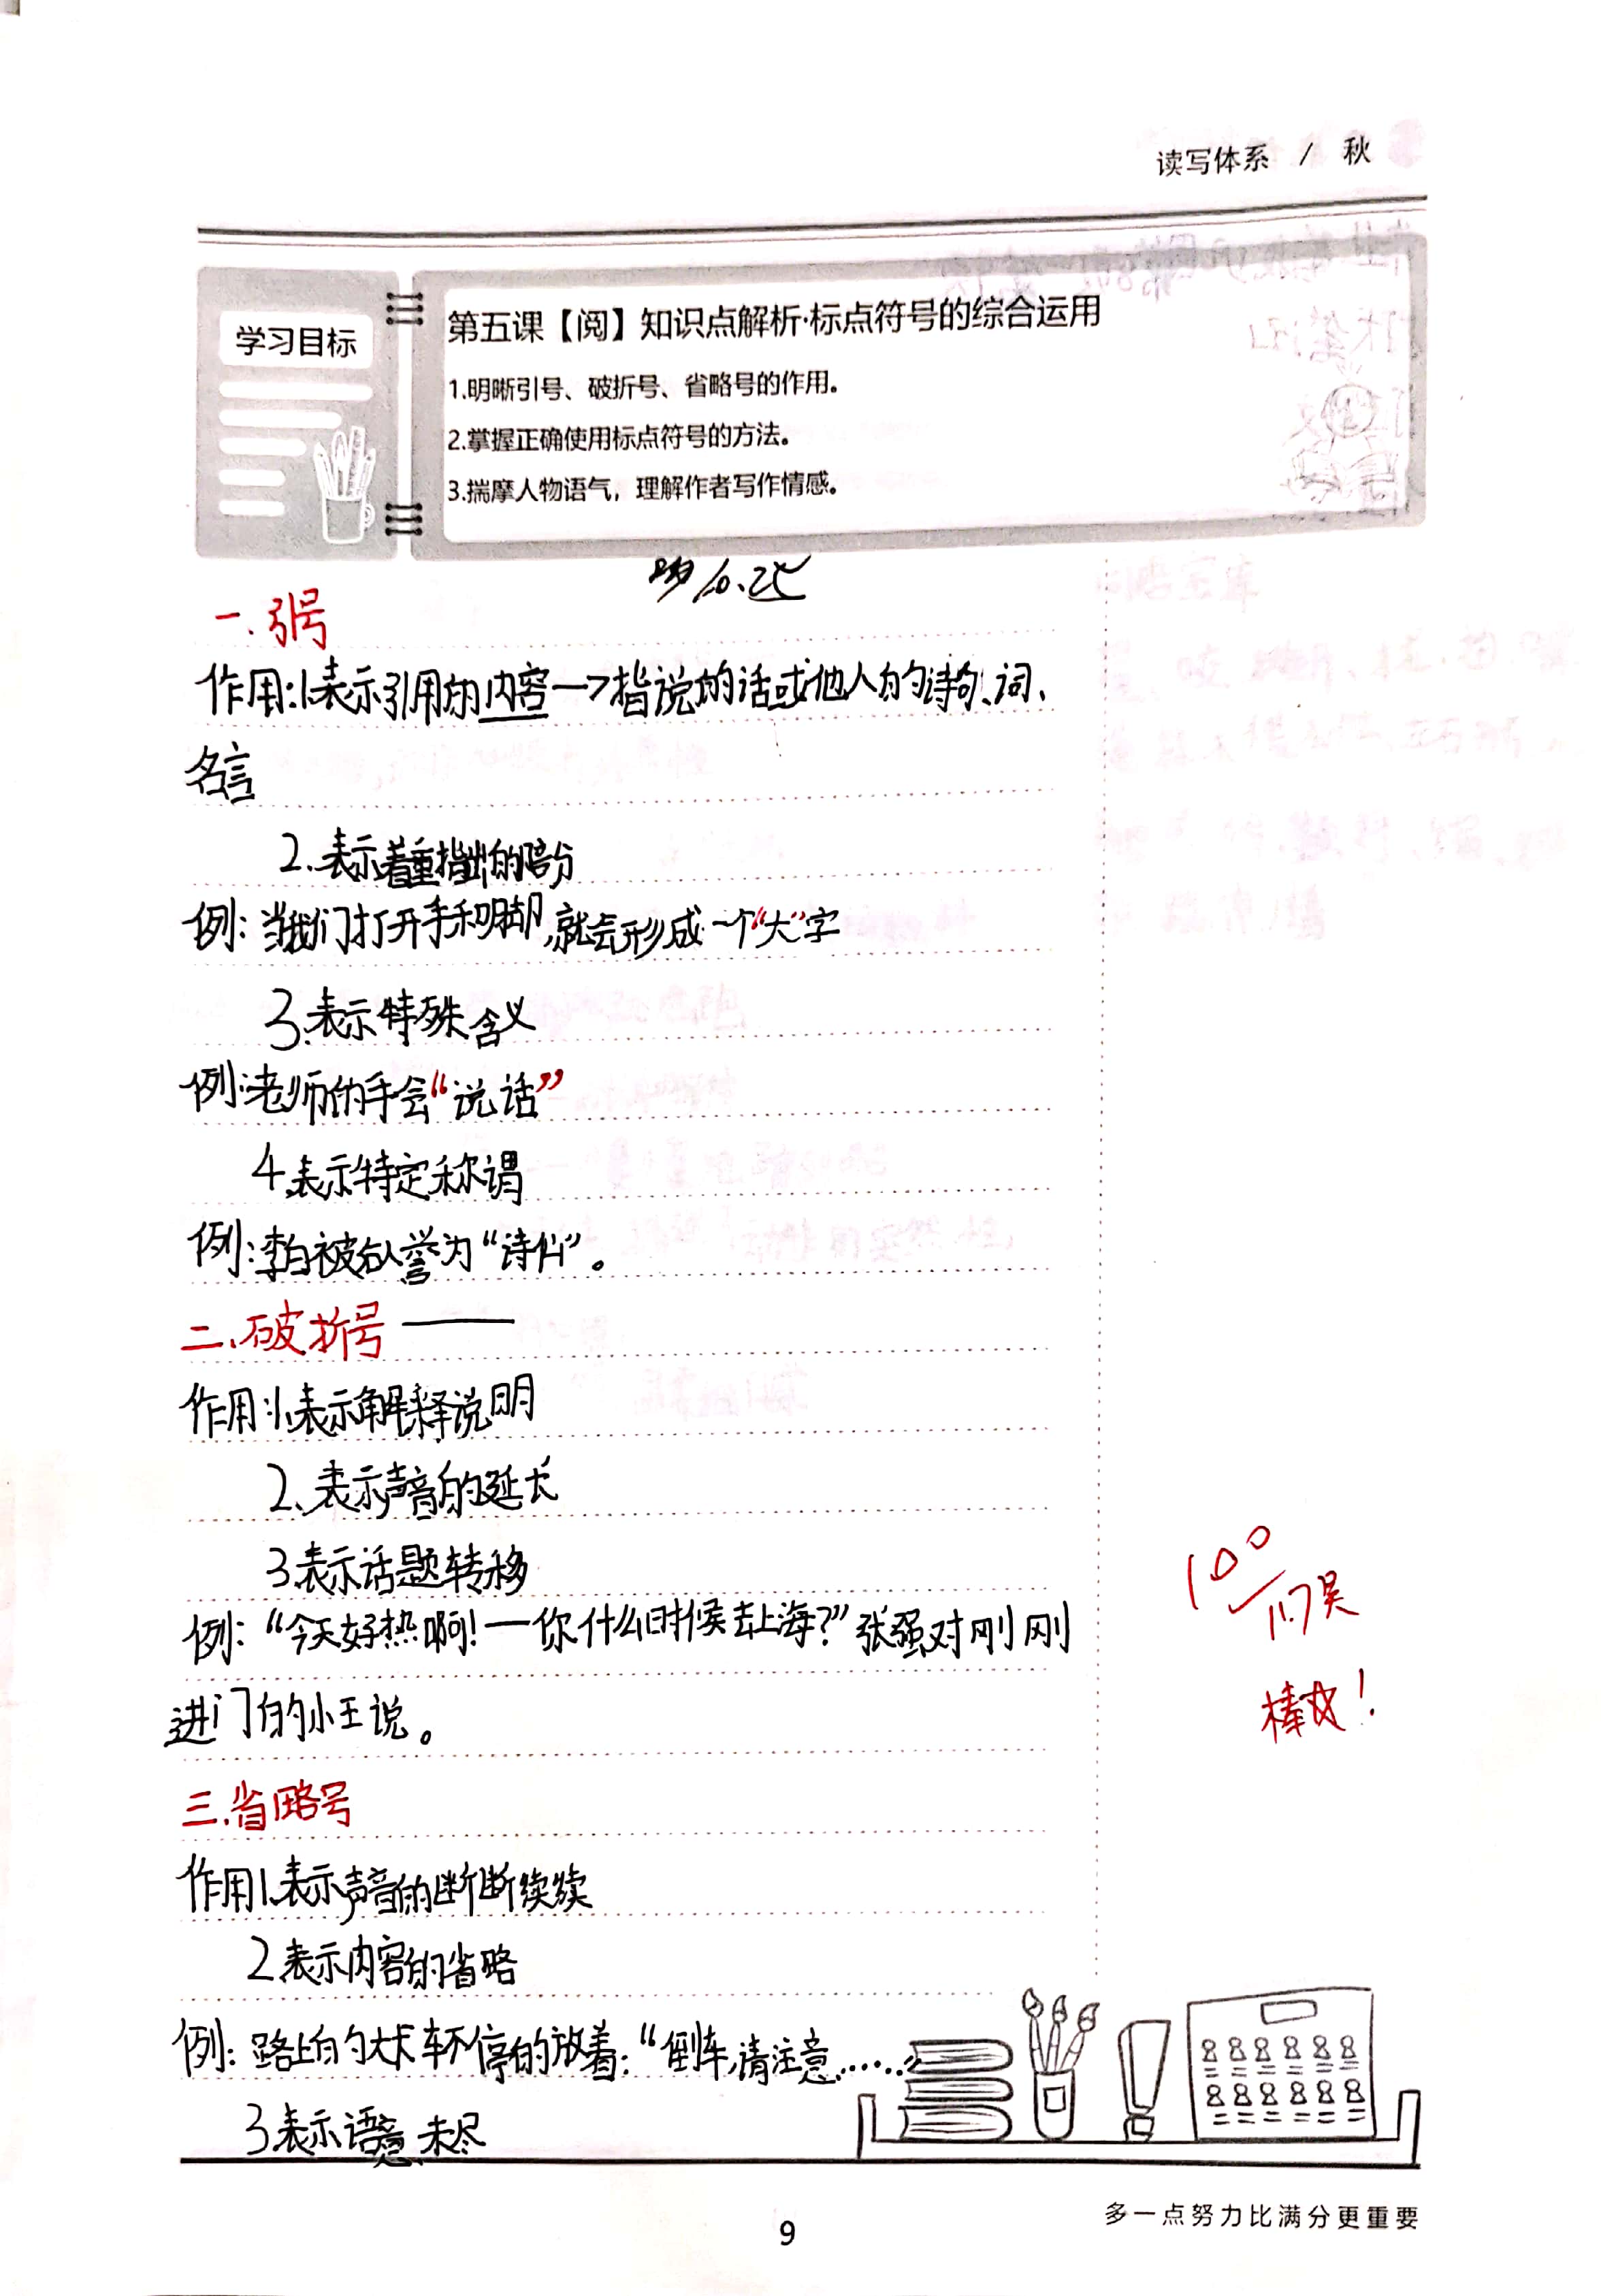 读写体系 / 秋
学习目标
第五课【阅】知识点解析·标点符号的综合运用
1.明晰引号、破折号、省略号的作用。
2.掌握正确使用标点符号的方法。
3.揣摩人物语气，理解作者写作情感。
10.25
一、引号
作用:1.表示引用的内容→指说的话或他人的诗句、词、
名言
2.表示着重指出的部分
例：当我们打开手和脚,就会形成一个“大”字
3.表示特殊含义
例:老师的手会“说话”
4.表示特定称谓
例:李白被后人誉为“诗仙”。
二、破折号 ——
作用:1.表示解释说明
2.表示声音的延长
3.表示话题转移
例：“今天好热啊!—你什么时候去上海?”张强对刚刚
进门的小王说。
三.省略号
作用1.表示声音的断断续续
2.表示内容的省略
例：路上的大卡车不停的放着：“倒车,请注意……”
3.表示语意未尽
100
11.7吴
棒哒！
多一点努力比满分更重要
9